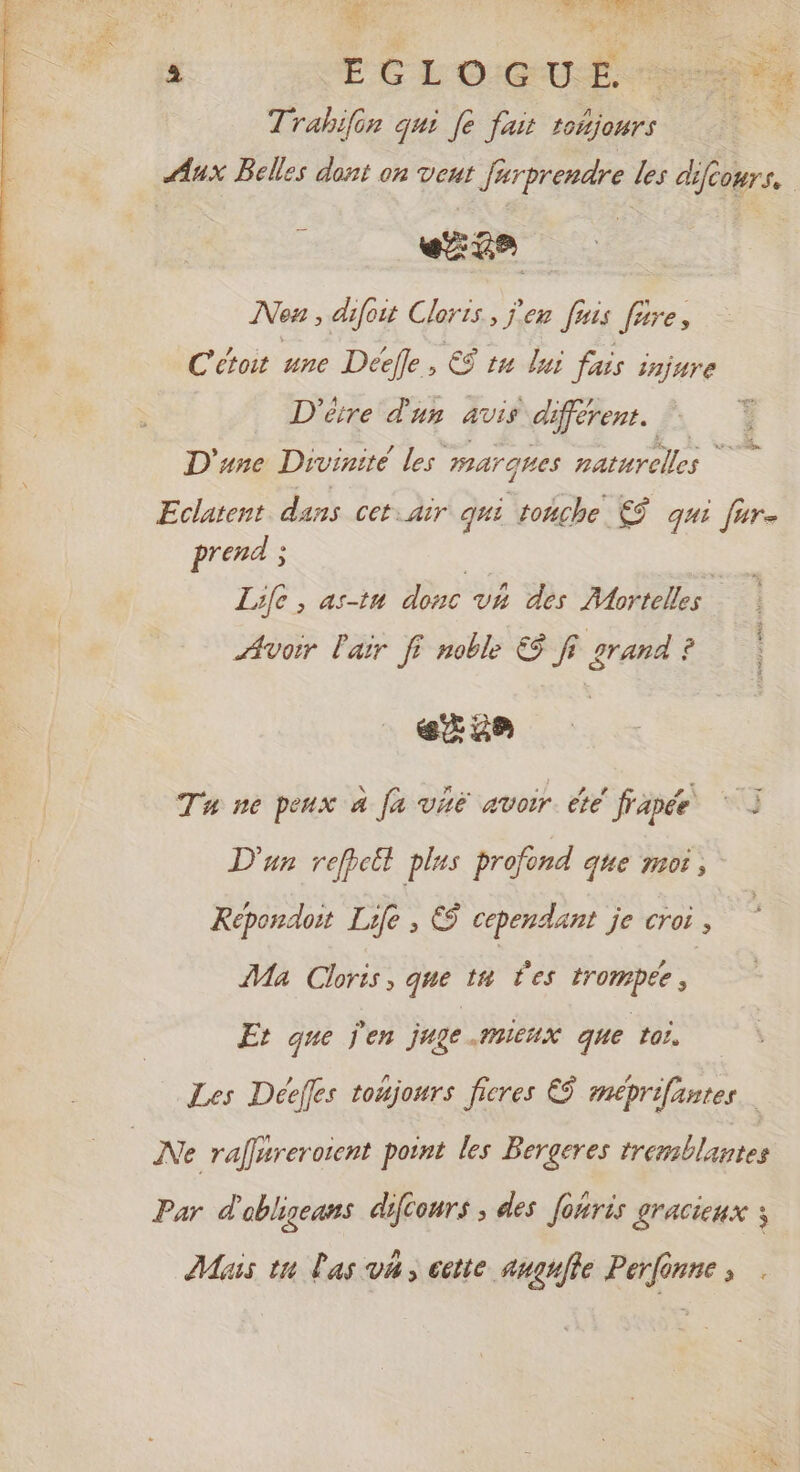 2 EGLOGUE.
Trahiſon qui ſe fait toûjours
Aux Belles dont on veut ſurprendre les diſcours.
Non, diſoit Cloris, j'en ſuis ſûre,
C'étoit une Déeſſe, & tu lui fais injure
D'être d'un avis différent.
D'une Divinité les marques naturelles
Eclatent dans cet air qui touche & qui ſur-
prend ;
Liſe, as-tu donc vû des Mortelles
Avoir l'air ſi noble & ſi grand ?
Tu ne peux à ſa vûë avoir été frapée
D'un reſpect plus profond que moi,
Répondoit Liſe, & cependant je croi,
Ma Cloris, que tu t'es trompée,
Et que j'en juge mieux que toi.
Les Déeſſes toûjours fieres & mépriſantes
Ne raſſûreroient point les Bergeres tremblantes
Par d'obligeans diſcours, des ſoûris gracieux ;
Mais tu l'as vû, cette auguſte Perſonne,